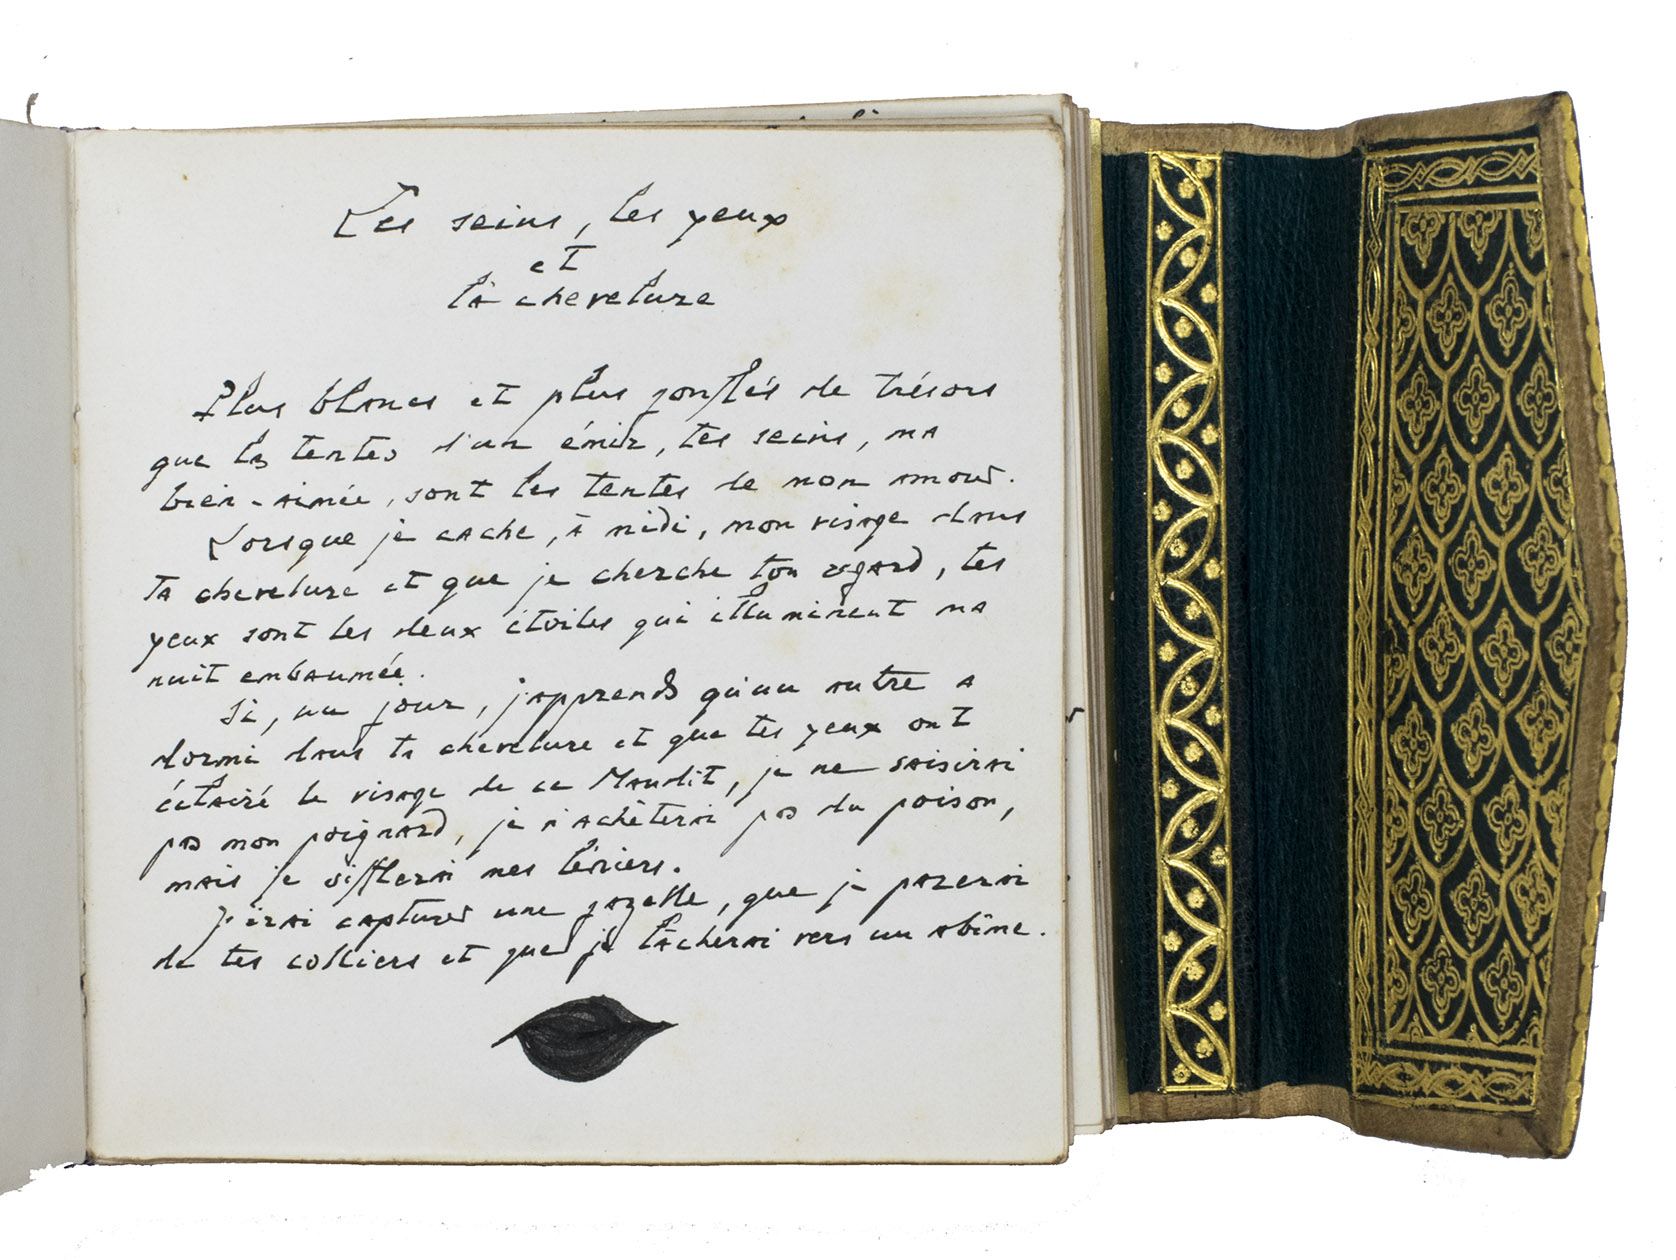 Les seins, les yeux
et
la chevelure
Plus blancs et plus gonflés de trésors
que les tentes d'un émir, tes seins, ma
bien-aimée, sont les tentes de mon amour.
Lorsque je cache, à midi, mon visage dans
ta chevelure et que je cherche ton regard, tes
yeux sont les deux étoiles qui illuminent ma
nuit embaumée.
Si, un jour, j'apprends qu'un autre a
dormi dans ta chevelure et que tes yeux ont
éclairé le visage de ce Maudit, je ne saisirai
pas mon poignard, je n'achèterai pas du poison,
mais je sifflerai mes lévriers.
J'irai capturer une gazelle, que je parerai
de tes colliers et que je lâcherai vers un abîme.